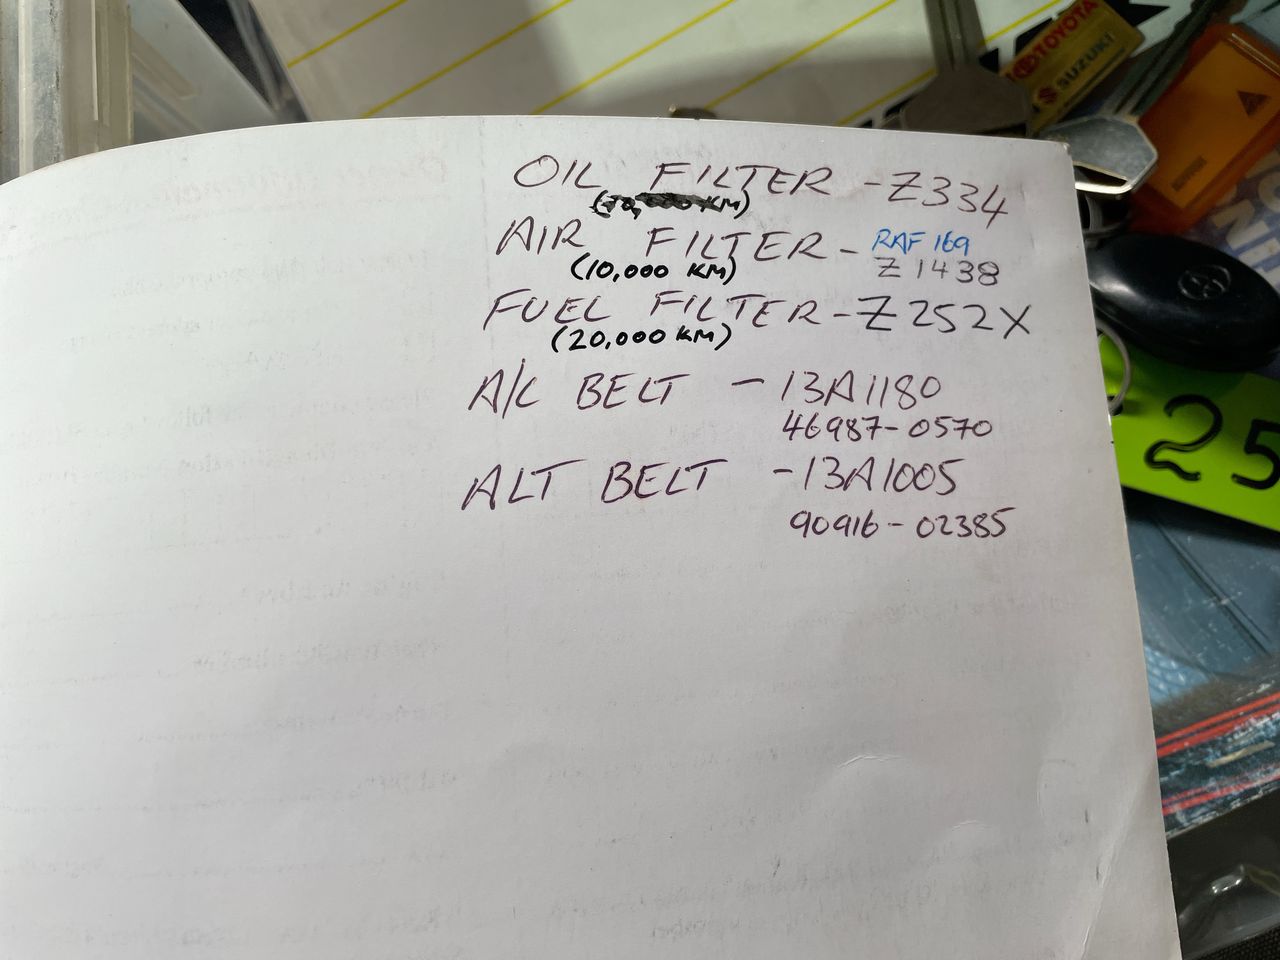 OIL FILTER - Z334
AIR FILTER - RAF 169
(10,000 KM) Z1438
FUEL FILTER - Z252X
(20,000 KM)
A/C BELT - 13A1180
46987-0570
ALT BELT - 13A1005
90916-02385
TOYOTA
SUZUKI
25